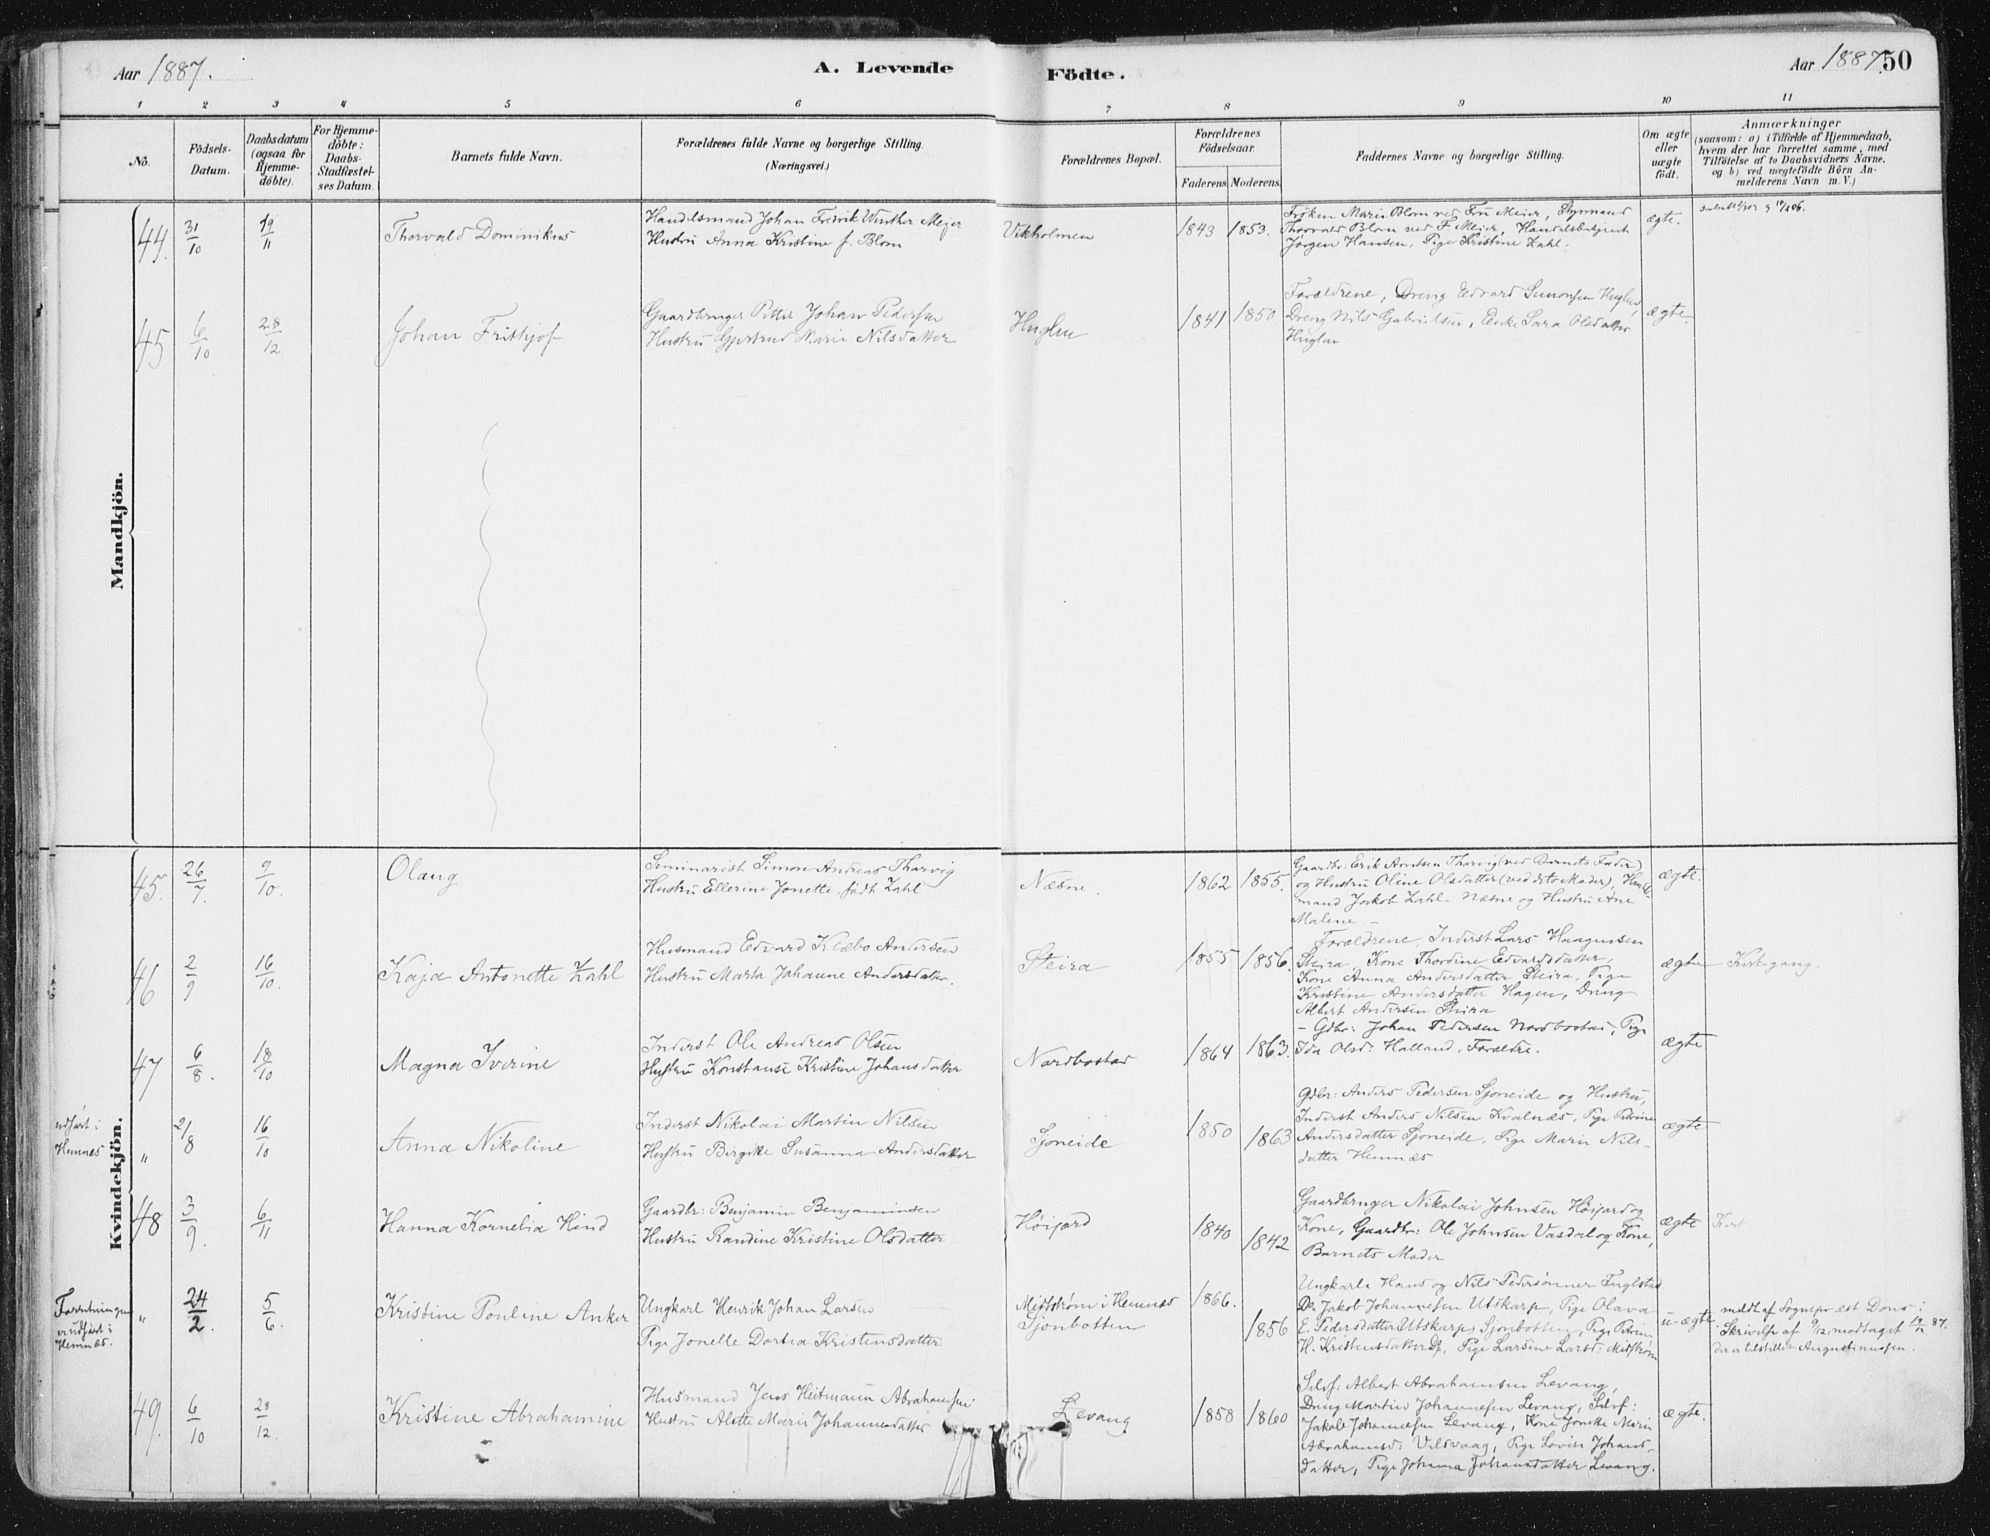 Aar 1887.
A. Levende Födte.
Aar 1887. 50
1 2 3 4 5 6 7 8 9 10 11
No.
Födsels-
Datum.
Daabsdatum
(ogsaa for
Hjemme-
döbte).
For Hjemme-
döbte:
Daabs-
Stadfæstel-
ses Datum.
Barnets fulde Navn.
Forældrenes fulde Navne og borgerlige Stilling.
(Næringsvei.)
Forældrenes Bopæl.
Forældrenes
Födselsaar.
Faderens. Moderens.
Faddernes Navne og borgerlige Stilling.
Om ægte
eller
uægte
födt.
Anmærkninger
(saasom: a) i Tilfælde af Hjemmedaab,
hvem der har forrettet samme, med
Tilföielse af to Daabsvidners Navne,
og b) ved uægtefödte Börn An-
melderens Navn m. V.)
Mandkjön.
44. 31/10 19/11 Thorvald Dominikus
Handelsmand Johan Fredrik Winther Mejer
Hustru Anna Kristine f. Blom
Vikholmen 1843 1853.
Frøken Marie Blom ved Fru Meier, Styrmand
Thorvald Blom ved F. Meier, Handelsbetjent
Jørgen Hansen, Pige Kristine Zahl.
ægte.
45 6/10 28/12 Johan Frithjof
Gaardbruger Petter Johan Pedersen
Hustru Gjertrud Marie Nilsdatter
Huglen 1841 1850.
Forældrene, Dreng Edvard Simonsen Huglen,
Dreng Nils Gabrielsen, Enke Sara Olsdatter
Huglen
ægte.
Kvindekjön.
45. 26/7. 9/10. Olaug
Seminarist Simon Andreas Thorvig
Hustru Ellerine Jonette født Zahl
Næsne. 1862 1855.
Gaardbr: Erik Arntsen Thorvig (ved Barnets Fader)
og Hustru Oline Olsdatter (ved dito Moder), Handels-
mand Jakob Zahl Næsne og Hustru Ane
Malene.
ægte.
46 2/9 16/10. Kaja Antonette Zahl
Husmand Edvard Klæbo Andersen
Hustru Marta Johanne Andersdatter.
Steira 1855 1856.
Forældrene, Inderst Lars Haagensen
Steira, Kone Thordine Edvardsdatter,
Kone Anna Andersdatter Steira, Pige
Kristine Andersdatter Hagen, Dreng
Albert Andersen Steira
ægte Kirkegang.
47 6/8. 18/10 Magna Iverine
Inderst Ole Andreas Olsen
Hustru Konstanse Kristine Johansdatter
Nordbostad 1864 1863.
- Gdbr: Johan Pedersen Nordbostad, Pige
Ida Olsd: Halland, Forældre.
ægte
udført i
Hemnæs
" 2/8 16/10 Anna Nikoline
Inderst Nikolai Martin Nilsen
Hustru Birgitte Susanna Andersdatter
Sjoneide 1850 1863
Gdbr: Anders Pedersen Sjoneide og Hustru,
Inderst Anders Nilsen Kvalnæs, Pige Petrine
Andersdatter Sjoneide, Pige Marie Nils-
datter Hemnæs
ægte
48 3/9. 6/11 Hanna Kornelia Hind
Gaardbr: Benjamin Benjaminsen
Hustru Randine Kristine Olsdatter
Høijord 1840 1842
Gaardbruger Nikolai Johnsen Høijord og
Kone, Gaardbr: Ole Johnsen Vasdal og Kone,
Barnets Moder
ægte
Forretningen
er udført i
Hemnæs.
" 24/2 5/6. Kristine Pouline Anker
Ungkarl Henrik Johan Larsen
Pige Jonelle Dortea Kristensdatter
Midtstrøm i Hemnæs
Sjonbotten
1866. 1856
Ungkarle Hans og Nils Pedersønner
Do. Jakob Johannesen Utskarp, Pige Olava
E. Pedersdatter Utskarp, Sjonbotten, Pige Petrine
H. Kristensdatter Do, Pige Larsine Larsd: Midtstrøm
u-ægte.
meldt af Sogneprest Dons i
Skrivelse af 9/12 modtaget 19/12 87.
der er tilstillet Augustinussen.
49. 6/10 28/12. Kristine Abrahamine
Husmand Jens Heitmann Abrahamsen
Hustru Alette Marie Johannesdatter
Levang 1858 1860
Selvf: Albert Abrahamsen Levang,
Dreng Martin Johannesen Levang, Selvf:
Jakob Johannesen Levang, Kone Jonette Marie
Abrahamsd: Vilsvaag, Pige Lovise Johans-
datter, Pige Johanna Johansdatter Levang.
ægte.